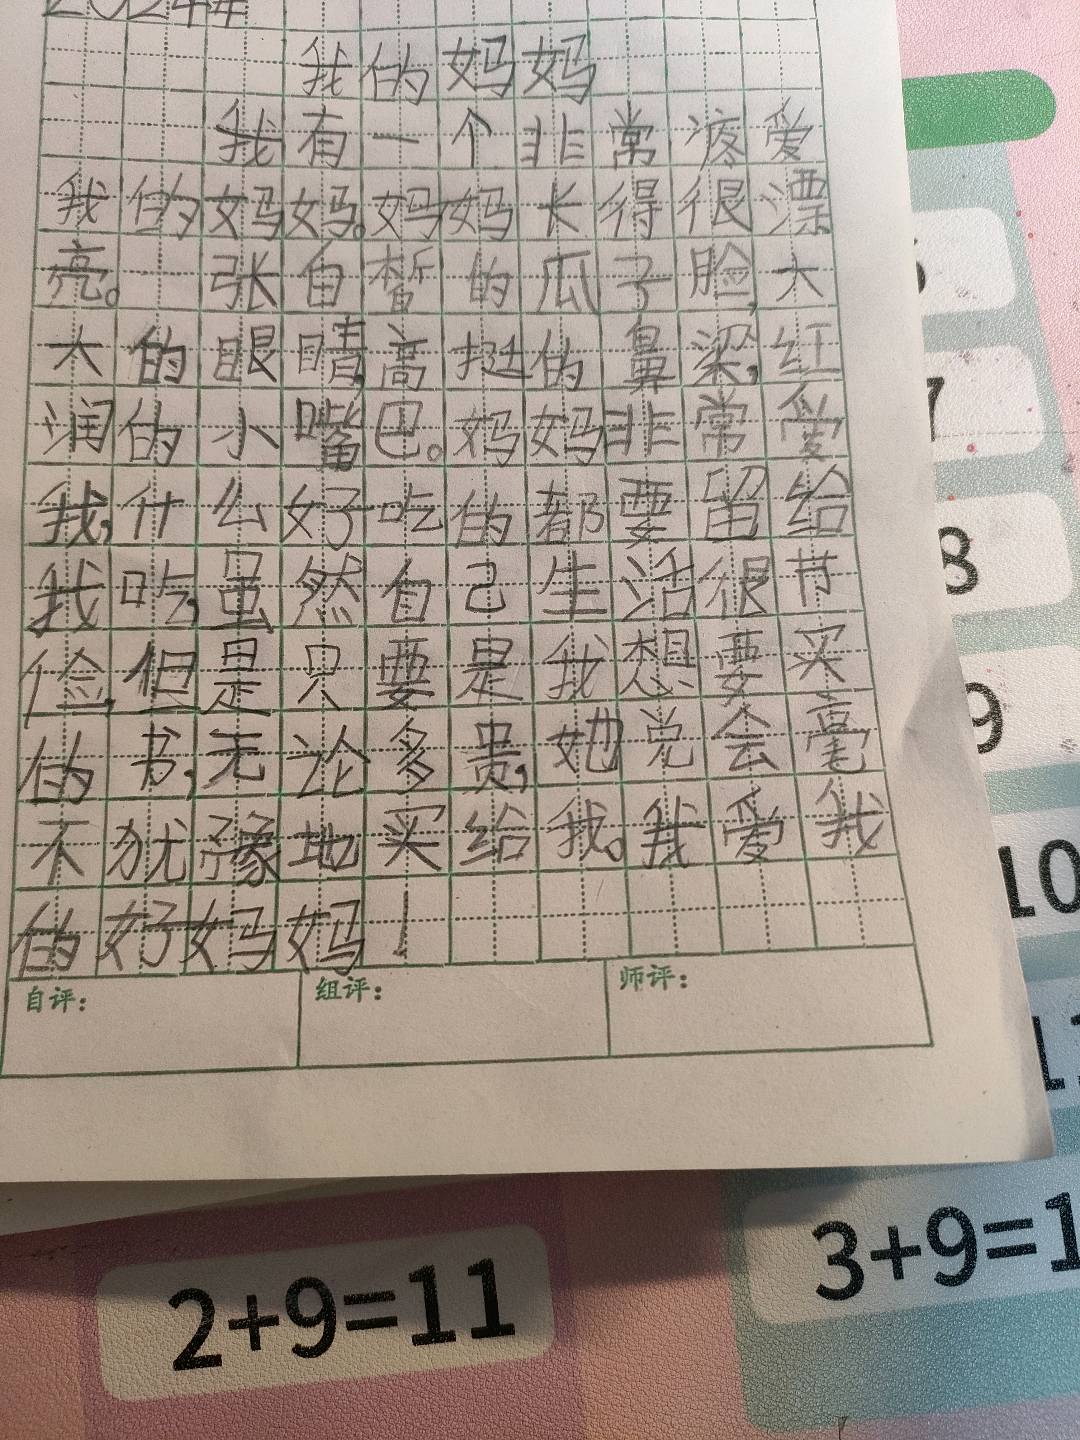 我的妈妈
我有一个非常疼爱
我的妈妈。妈妈长得很漂
亮。 张白皙的瓜子脸,大
大的眼睛,高挺的鼻梁,红
润的小嘴巴。妈妈非常爱
我,什么好吃的都要留给
我吃,虽然自己生活很节
俭,但是只要是我想要买
的书,无论多贵,她说会毫
不犹豫地买给我。我爱我
的好妈妈!
自评: 组评: 师评:
8
9
10
2+9=11
3+9=1